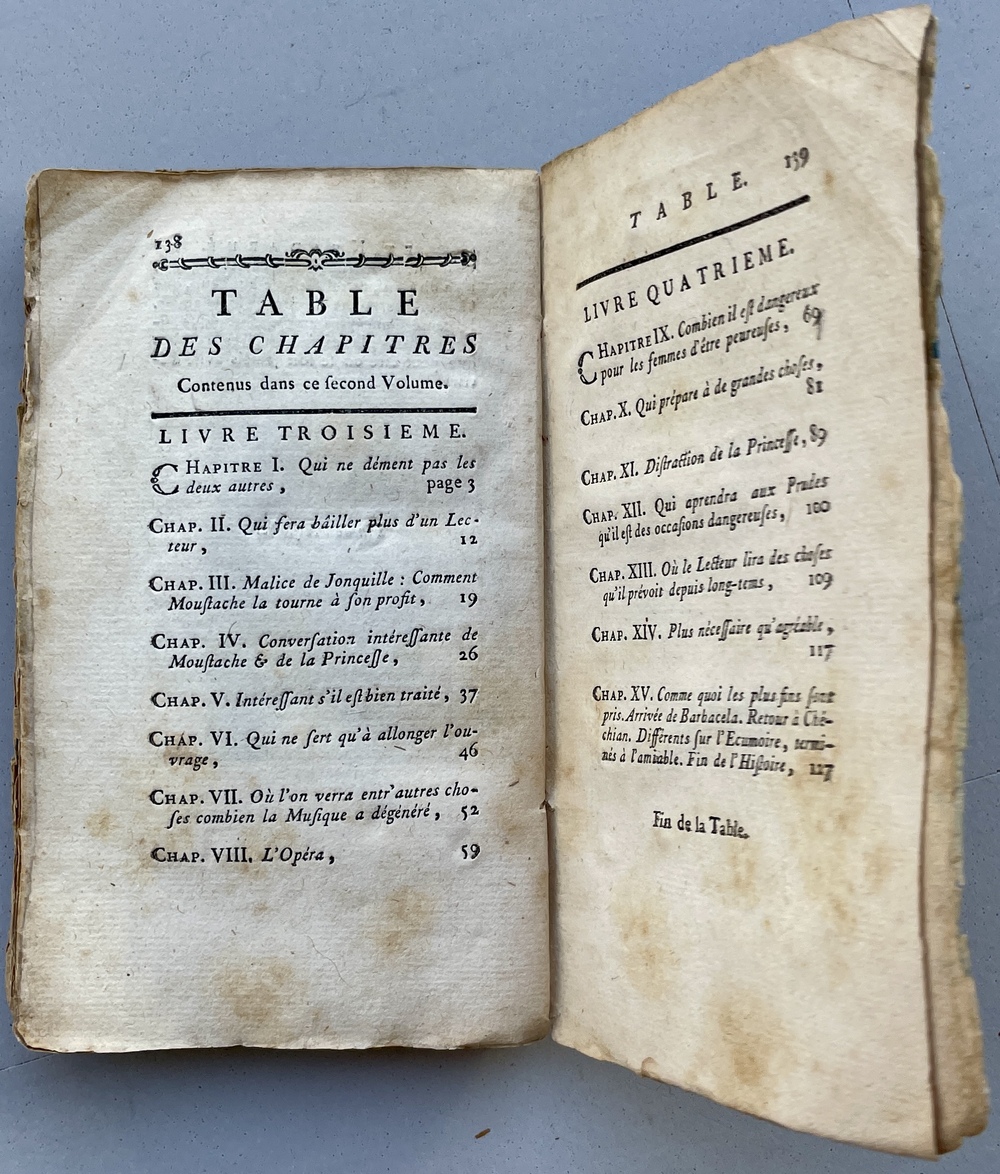 138
TABLE
DES CHAPITRES
Contenus dans ce ſecond Volume.
LIVRE TROISIEME.
CHAPITRE I. Qui ne dément pas les
deux autres, page 3
CHAP. II. Qui ſera bâiller plus d'un Lec-
teur, 12
CHAP. III. Malice de Jonquille : Comment
Mouſtache la tourne à ſon profit, 19
CHAP. IV. Converſation intéreſſante de
Mouſtache & de la Princeſſe, 26
CHAP. V. Intéreſſant s'il eſt bien traité, 37
CHAP. VI. Qui ne ſert qu'à allonger l'ou-
vrage, 46
CHAP. VII. Où l'on verra entr'autres cho-
ſes combien la Muſique a dégénéré, 52
CHAP. VIII. L'Opéra, 59
TABLE. 139
LIVRE QUATRIEME.
CHAPITRE IX. Combien il eſt dangereux
pour les femmes d'être peureuſes, 69
CHAP. X. Qui prépare à de grandes choſes,
81
CHAP. XI. Diſtraction de la Princeſſe, 89
CHAP. XII. Qui aprendra aux Prudes
qu'il eſt des occaſions dangereuſes, 100
CHAP. XIII. Où le Lecteur lira des choſes
qu'il prévoit depuis long-tems, 109
CHAP. XIV. Plus néceſſaire qu'agréable,
117
CHAP. XV. Comme quoi les plus fins ſont
pris. Arrivée de Barbacela. Retour à Ché-
chian. Différents ſur l'Ecumoire, termi-
nés à l'amiable. Fin de l'Hiſtoire, 127
Fin de la Table.